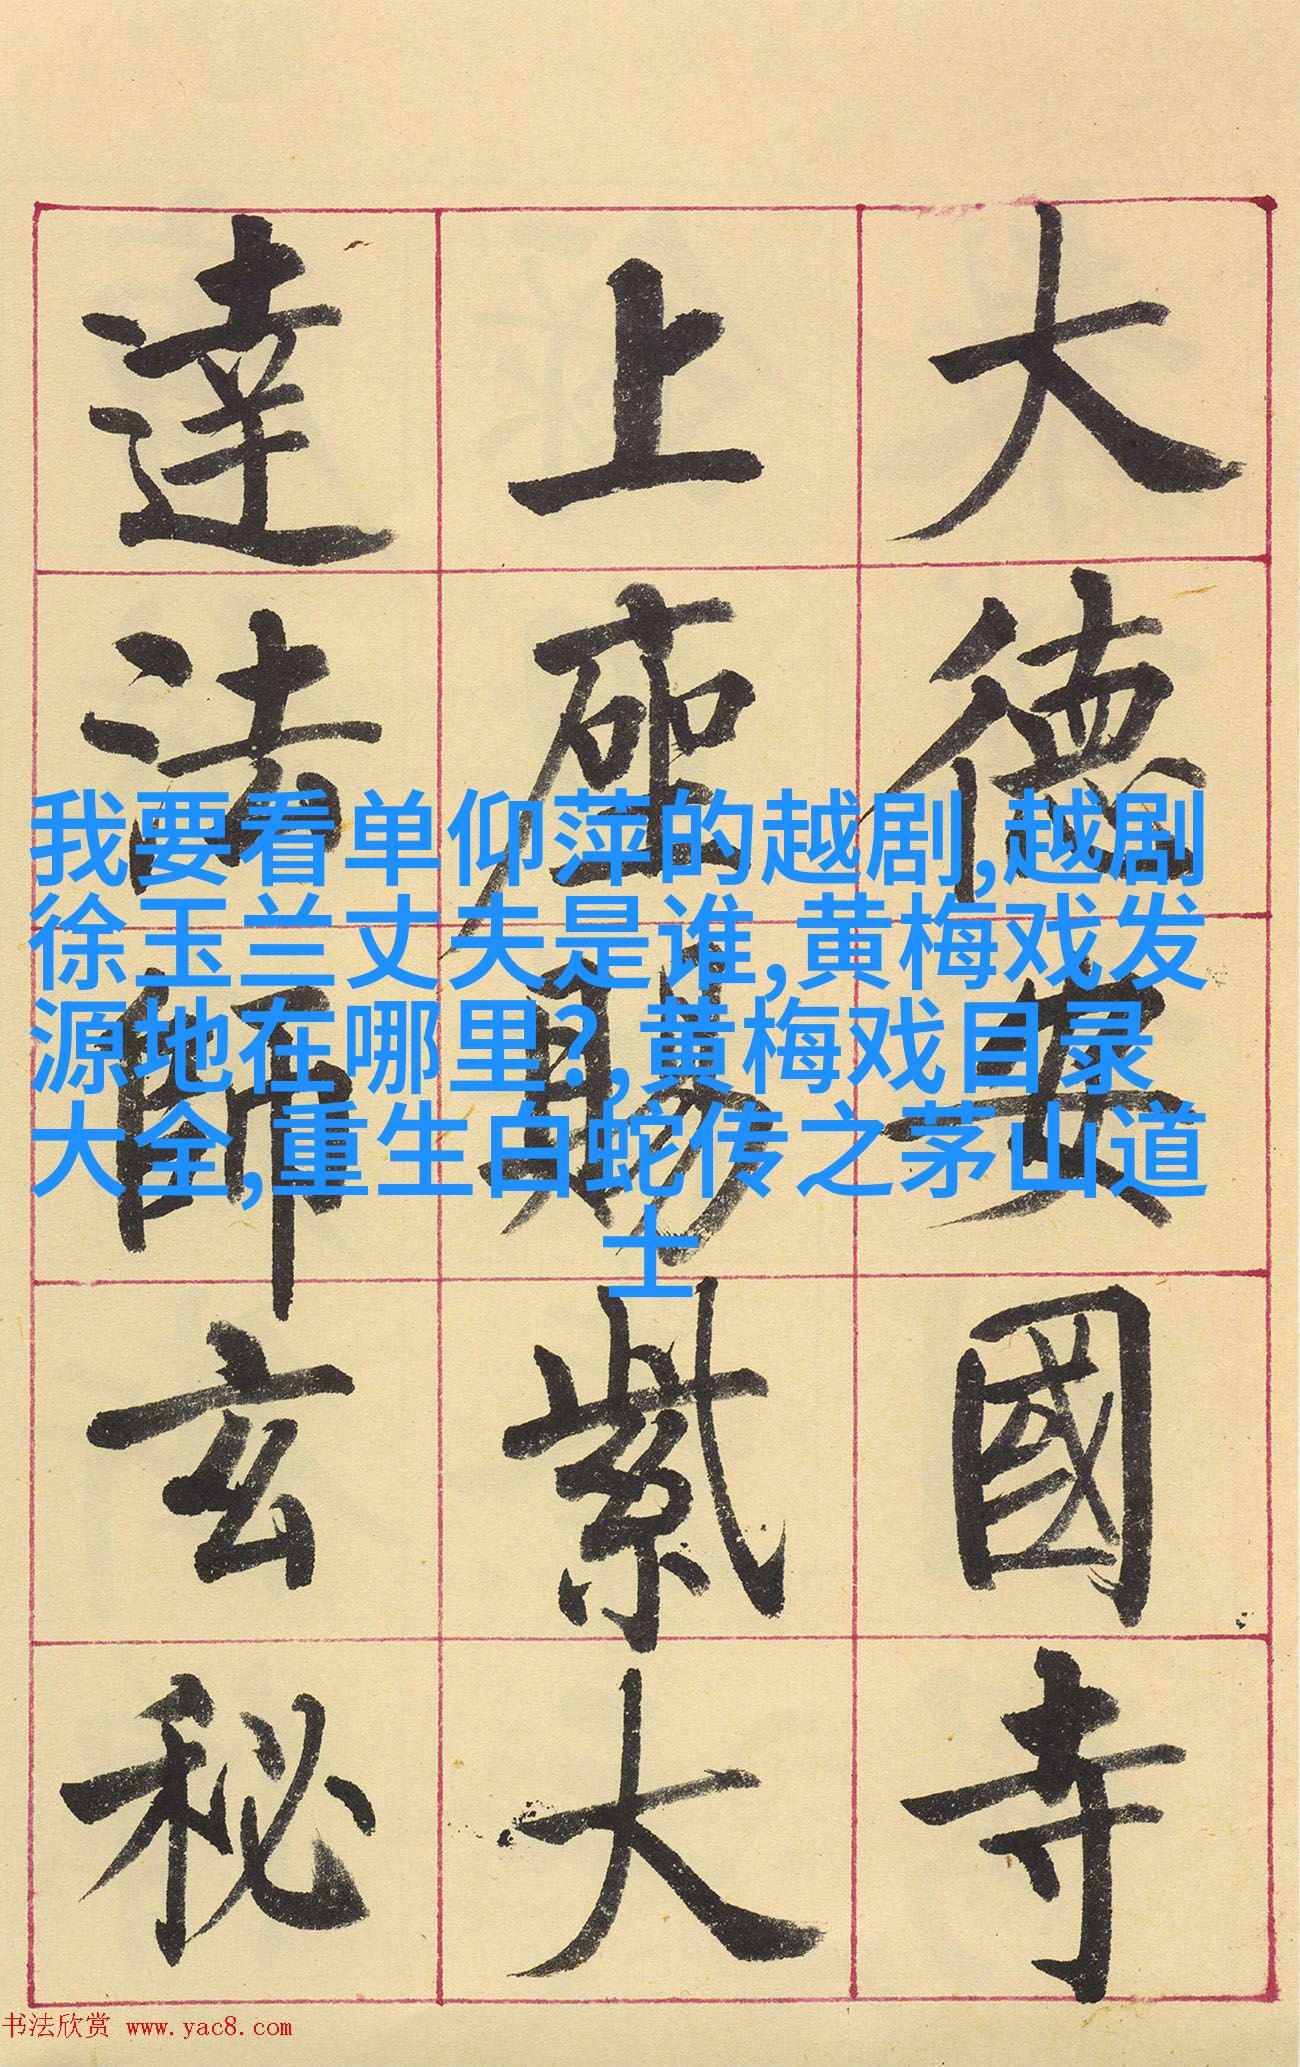 大德安國寺
上座賜紫大
達法師玄秘
我要看单仰萍的越剧,越剧
徐玉兰丈夫是谁,黄梅戏发
源地在哪里?,黄梅戏目录
大全,重生白蛇传之茅山道
士
书法欣赏 www.yac8.com